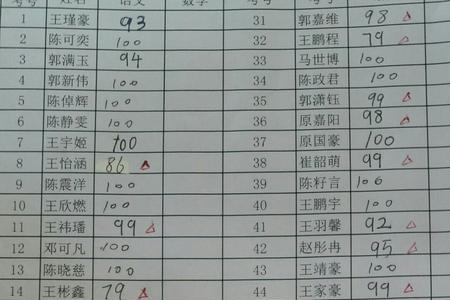 考号 姓名 语文 数学 考号 姓名
1 王瑾豪 93 31 郭嘉维 98
2 陈可奕 100 32 王鹏程 79
3 郭满玉 94 33 马世博 100
4 郭新伟 100 34 陈政君 100
5 陈倬辉 100 35 郭潇钰 99
6 陈静雯 100 36 原嘉阳 98
7 王宇姬 100 37 原国豪 100
8 王怡涵 86 38 崔韶萌 99
9 陈震洋 100 39 陈籽言 100
10 王欣燃 100 40 王鹏宇 100
11 王祎璠 99 41 王羽馨 92
12 邓可凡 100 42 赵彤冉 95
13 陈晓慈 100 43 王靖豪 100
14 王彬鑫 79 44 王家豪 99